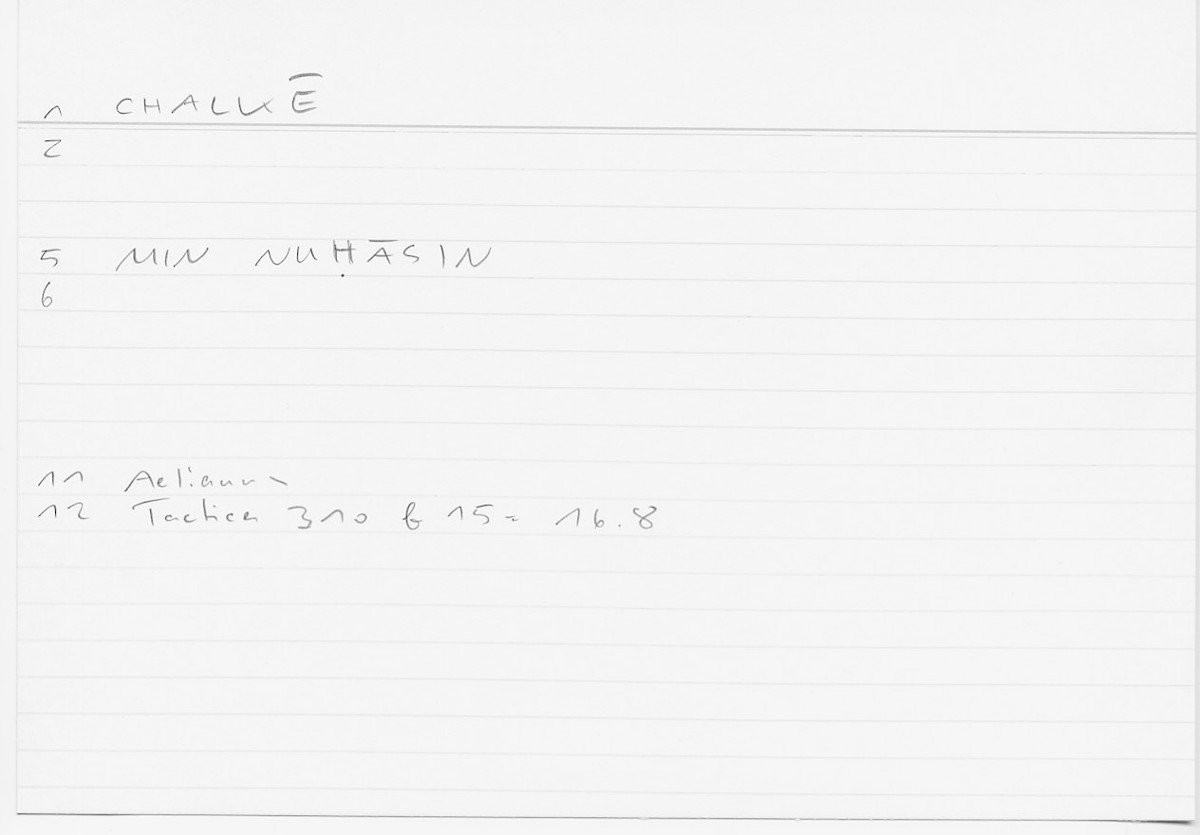 1 CHALKĒ
2
5 MIN NUḤĀSIN
6
11 Aelianus
12 Tactica 310 b 15 = 16.8